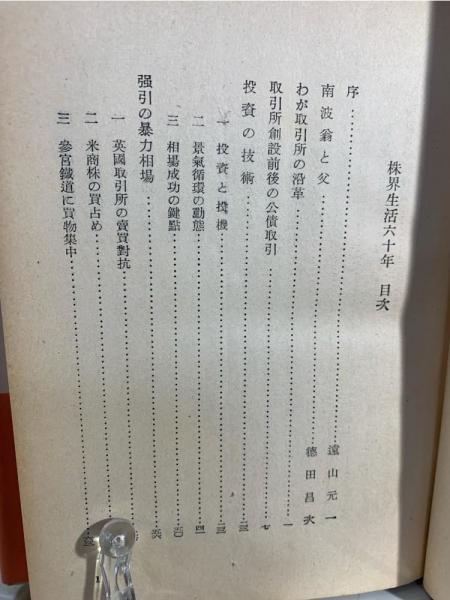 株界生活六十年 目次
序……遠山元一
南波翁と父……德田昌次
わが取引所の沿革……一
取引所創設前後の公債取引……七
投資の技術……三
一 投資と投機……三
二 景氣循環の動態……四
三 相場成功の鍵點……吾
强引の暴力相場……
一 英國取引所の賣買對抗……
二 米商株の買占め……
三 參宮鐵道に買物集中……
1